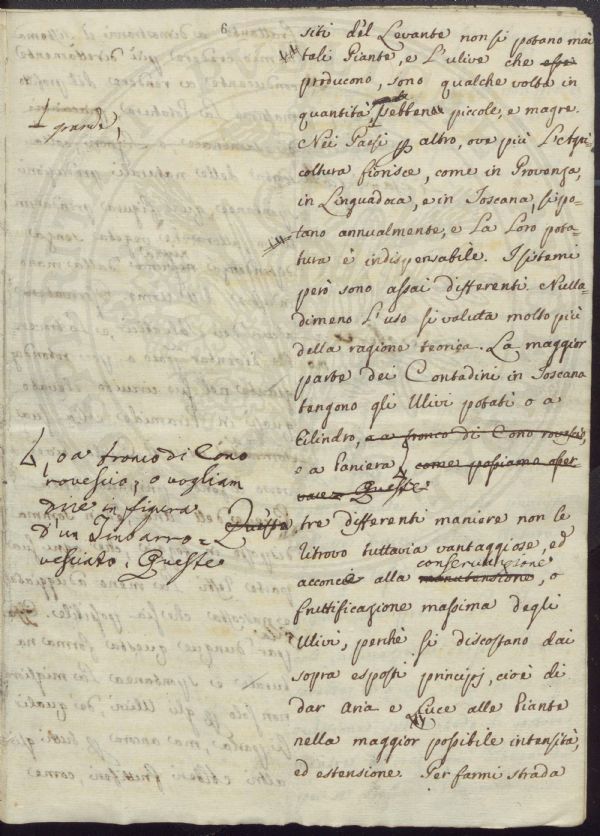 6
siti del Levante non si potano mai
tali Piante, e L'ulive che esse
producono, sono qualche volta in
quantità sebbene piccole, e magre.
grande,
Nei Paesi altro, ove più L'Agri-
coltura fiorisce, come in Provenza,
in Linguadoca, e in Toscana, si po-
tano annualmente, e La Loro pota-
tura è indispensabile. I sistemi
però sono assai differenti. Nulla-
dimeno L'uso si valuta molto più
della ragione teorica. La maggior
parte dei Contadini in Toscana
tengono gli Ulivi potati o a
Cilindro, o a tronco di Cono rovescio,
o a Paniera, come possiamo osser-
vare. Queste
, o a tronco di Cono
rovescio, o vogliam
dire in figura
d'un Timbarro-
vesciato. Queste
Queste tre differenti maniere non le
ritrovo tuttavia vantaggiose, ed
acconcie alla manutensione, o
conservazione
fruttificazione massima degli
Ulivi, perchè si discostano dai
sopra esposti principj, cioè di
dar Aria e Luce alle Piante
nella maggior possibile intensità,
ed estensione. Per farmi strada